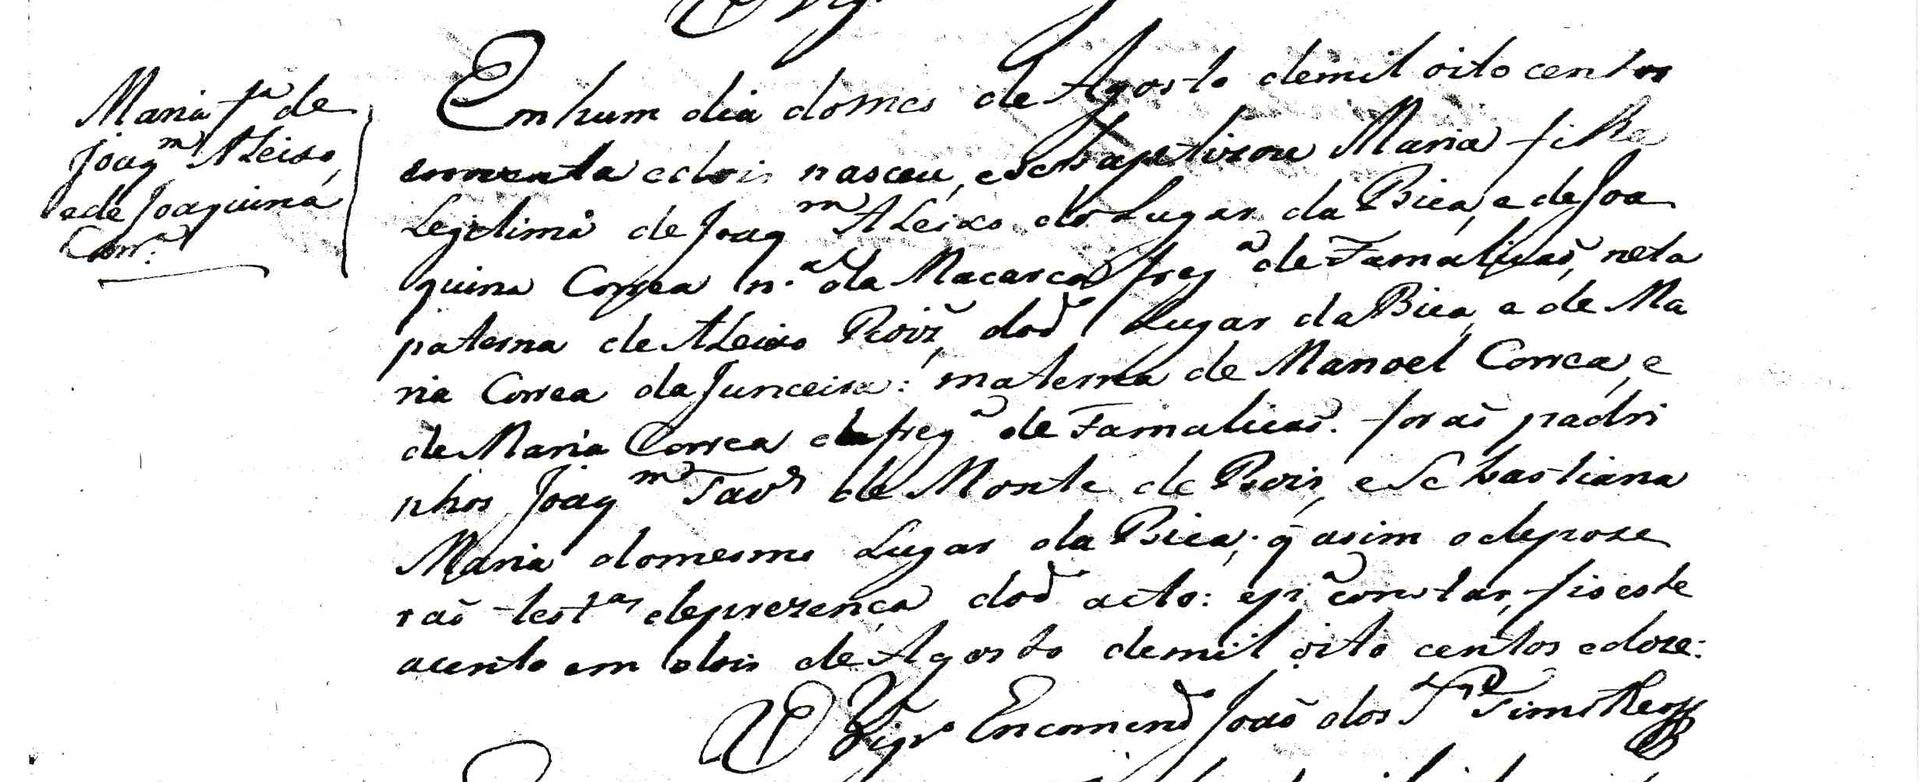 Maria f.ª de
Joaqm Aleixo,
e de Joaquina
Corrª.
Em hum dia do mes de Agosto de mil oito centos
e dois nasceu, e se baptizou Maria filha
Legetima de Joaqm Aleixo do Lugar da Bica, e de Joa
quina Correa n.al da Macarca fregª de Famalicaõ, neta
paterna de Aleixo Roiz, do dº Lugar da Bica, e de Ma
ria Correa da Junceira: materna de Manoel Correa, e
de Maria Correa da fregª de Famalicaõ. foraõ padri
nhos Joaqm Tavs de Monte de Roiz, e Sebastiana
Maria do mesmo Lugar da Bica; q̃ asim o depoze
raõ testªs de prezença do dº acto: e pª constar, fis este
acento em dois de Agosto de mil oito centos e doze:
O Vigrº Encomendº Joaõ dos